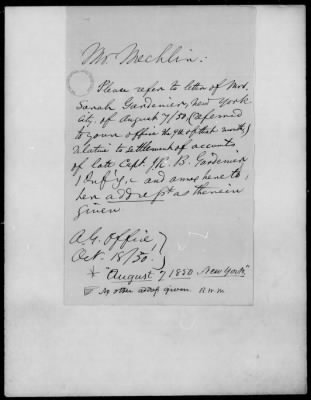 Mr. Mechlin:
Please refer to letter of Mrs.
Sarah Gardenier, New York
City, of August 7/50 (referred
to your office the 9th of that month)
relative to settlement of accounts
of late Capt. Jno. B. Gardenier
1 Infy, and annex hereto
her address as therein
given
A.G. Office,
Oct. 18/50.
* "August 7 1850 New York"
No other address given. R.W.M.